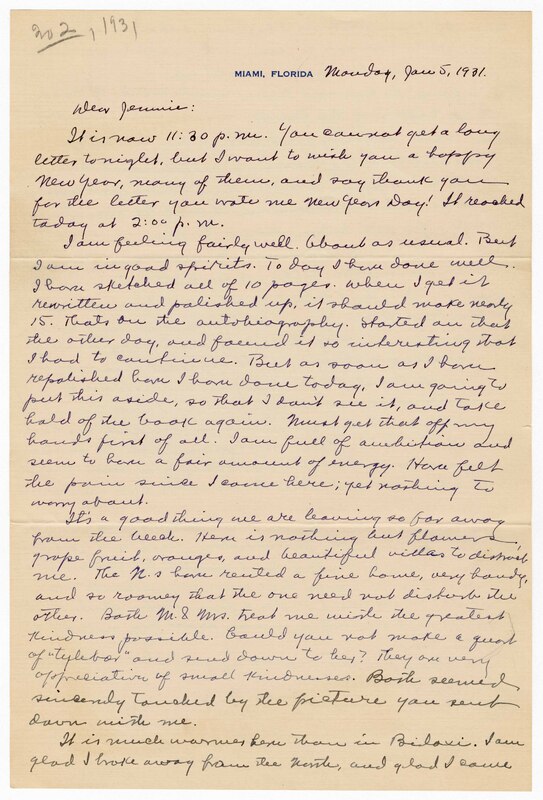 202, 1931
MIAMI, FLORIDA Monday, Jan 5, 1931.
Dear Jennie:
It is now 11:30 p.m. You cannot get a long
letter tonight, but I want to wish you a happy
New Year, many of them, and say thank you
for the letter you wrote me New Years Day! It reached
today at 2:00 p.m.
I am feeling fairly well. About as usual. But
I am in good spirits. To day I have done well.
I have sketched all of 10 pages. When I get it
rewritten and polished up, it should make nearly
15. Thats on the autobiography. Started on that
the other day, and found it so interesting that
I had to continue. But as soon as I have
repolished how I have done today, I am going to
put this aside, so that I don't see it, and take
hold of the book again. Must get that off my
hands first of all. I am full of ambition and
seem to have a fair amount of energy. Have felt
the pain since I came here; yet nothing to
worry about.
It's a good thing we are leaving so far away
from the . Here is nothing but flowers,
grape fruit, oranges, and beautiful villas to disturb
me. The N.s have rented a fine home, very handy,
and so roomy that the one need not disturb the
other. Both M. & Mrs. treat me with the greatest
kindness possible. Could you not make a quart
of " " and send down to her? They are very
appreciative of small kindnesses. Both seemed
sincerely touched by the picture you sent
down with me.
It is much warmer here than in Biloxi. I am
glad I broke away from the North, and glad I came